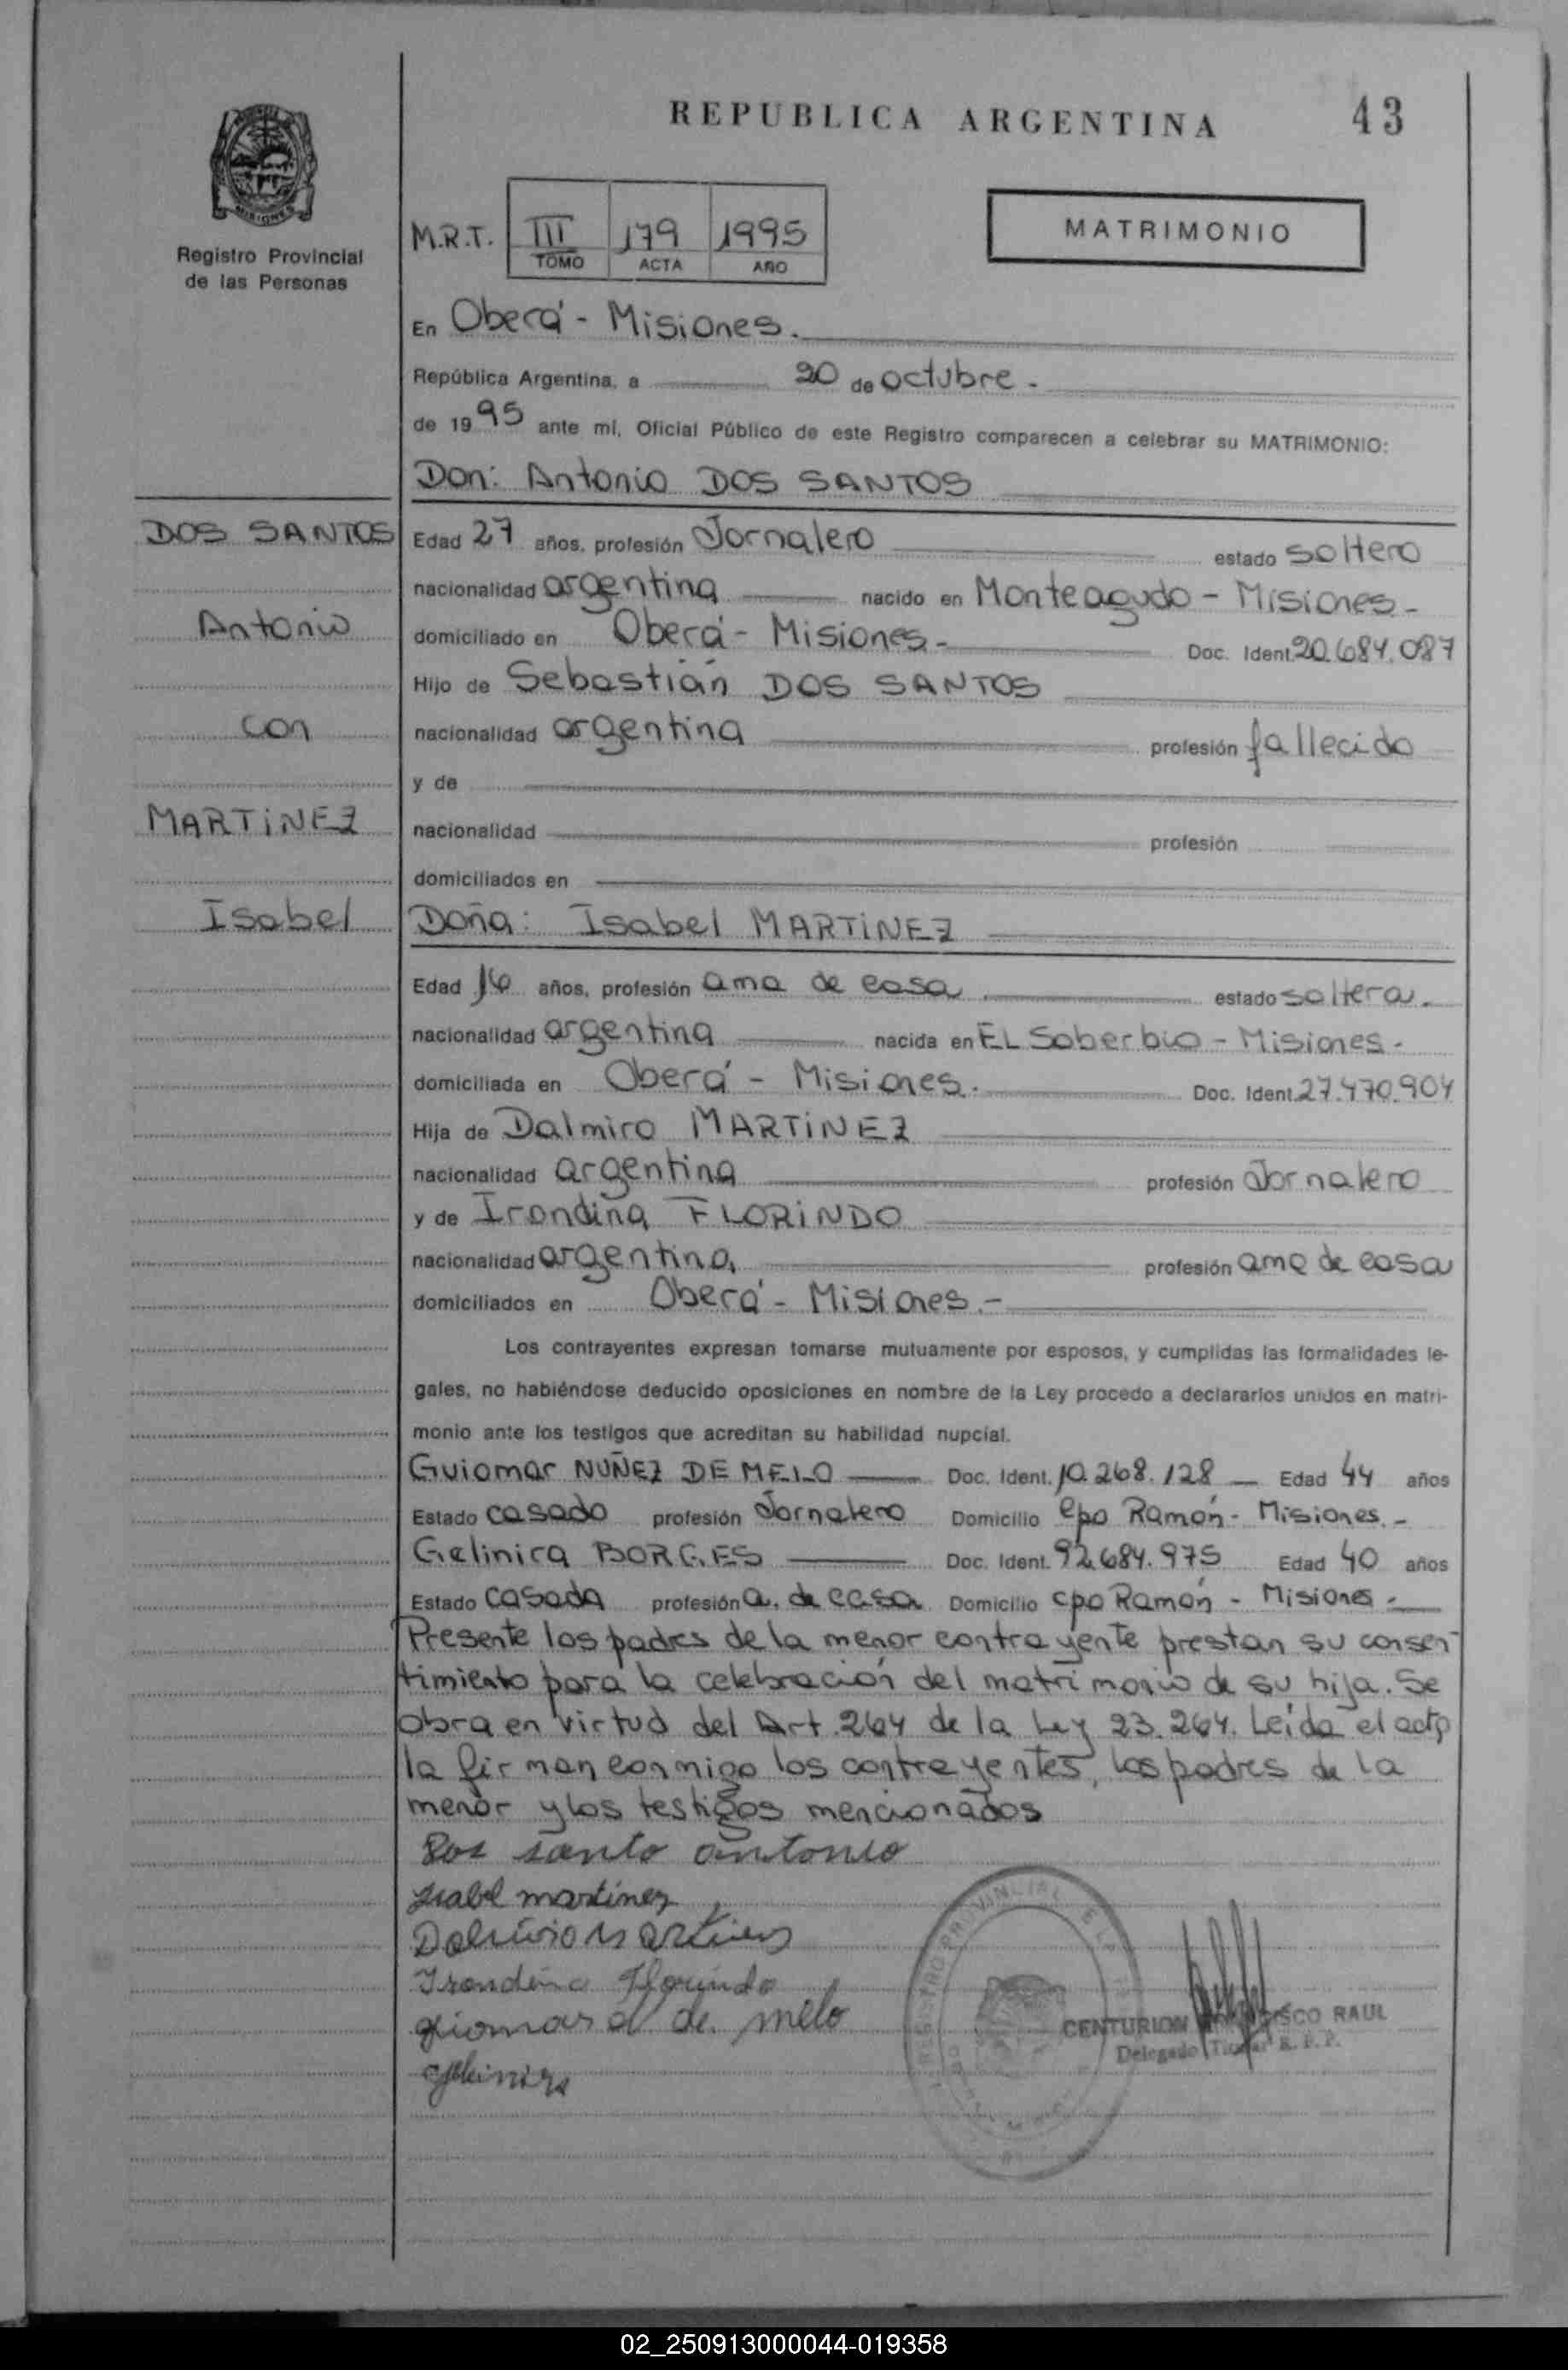 REPUBLICA ARGENTINA
43
MISIONES
Registro Provincial
de las Personas
M.R.T. III 179 1995
TOMO ACTA AÑO
MATRIMONIO
En Oberá - Misiones.
República Argentina, a 20 de octubre.-
de 1995 ante mí, Oficial Público de este Registro comparecen a celebrar su MATRIMONIO:
Don: Antonio DOS SANTOS
DOS SANTOS
Antonio
con
MARTINEZ
Isabel
Edad 27 años, profesión Jornalero estado soltero
nacionalidad argentina nacido en Monteagudo - Misiones.-
domiciliado en Oberá - Misiones.- Doc. Ident. 20.684.087
Hijo de Sebastián DOS SANTOS
nacionalidad argentina profesión fallecido
y de
nacionalidad profesión
domiciliados en
Doña: Isabel MARTINEZ
Edad 16 años, profesión ama de casa estado soltera.
nacionalidad argentina nacida en EL Soberbio - Misiones.-
domiciliada en Oberá - Misiones. Doc. Ident. 27.470.904
Hija de Dalmiro MARTINEZ
nacionalidad argentina profesión Jornalero
y de Irondina FLORINDO
nacionalidad argentina, profesión ama de casa
domiciliados en Oberá - Misiones.-
Los contrayentes expresan tomarse mutuamente por esposos, y cumplidas las formalidades le-
gales, no habiéndose deducido oposiciones en nombre de la Ley procedo a declararlos unidos en matri-
monio ante los testigos que acreditan su habilidad nupcial.
Guiomar NUÑEZ DE MELO Doc. Ident. 10.268.128 Edad 44 años
Estado casado profesión Jornalero Domicilio cpo Ramón - Misiones.-
Gelinira BORGES Doc. Ident. 92.684.975 Edad 40 años
Estado casada profesión a. de casa Domicilio cpo Ramón - Misiones.-
Presente los padres de la menor contrayente prestan su consen-
timiento para la celebración del matrimonio de su hija. Se
obra en virtud del Art. 264 de la Ley 23.264. Leída el acta
la firman conmigo los contrayentes, los padres de la
menor y los testigos mencionados
Dos santo antonio
Isabel martinez
Irondina Florindo
de melo
CENTURION RAUL
Delegado Titular R. P. P.
REGISTRO PROVINCIAL DE LAS
02_250913000044-019358